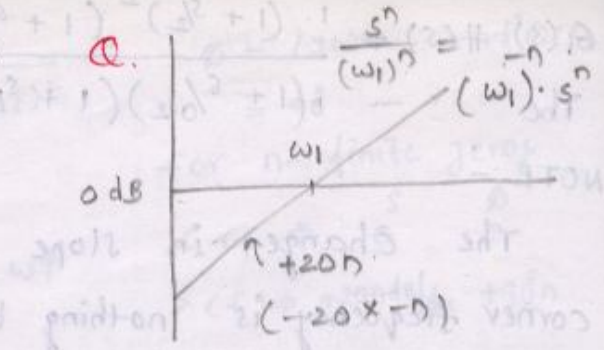 Q.
s^n / (ω1)^n = (ω1)^-n · s^n
ω1
0 dB
+20n
(-20 × -n)